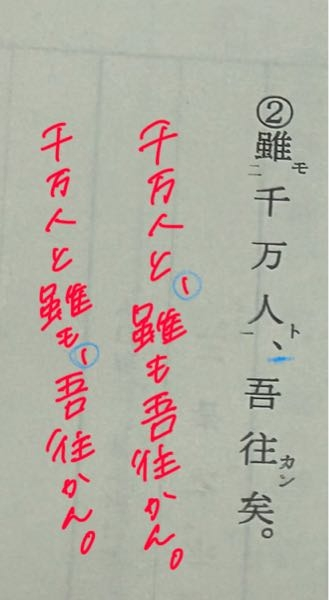 ②雖モ二千万人ト一、吾往カン矣。
千万人と、雖も吾往かん。
千万人と雖も、吾往かん。